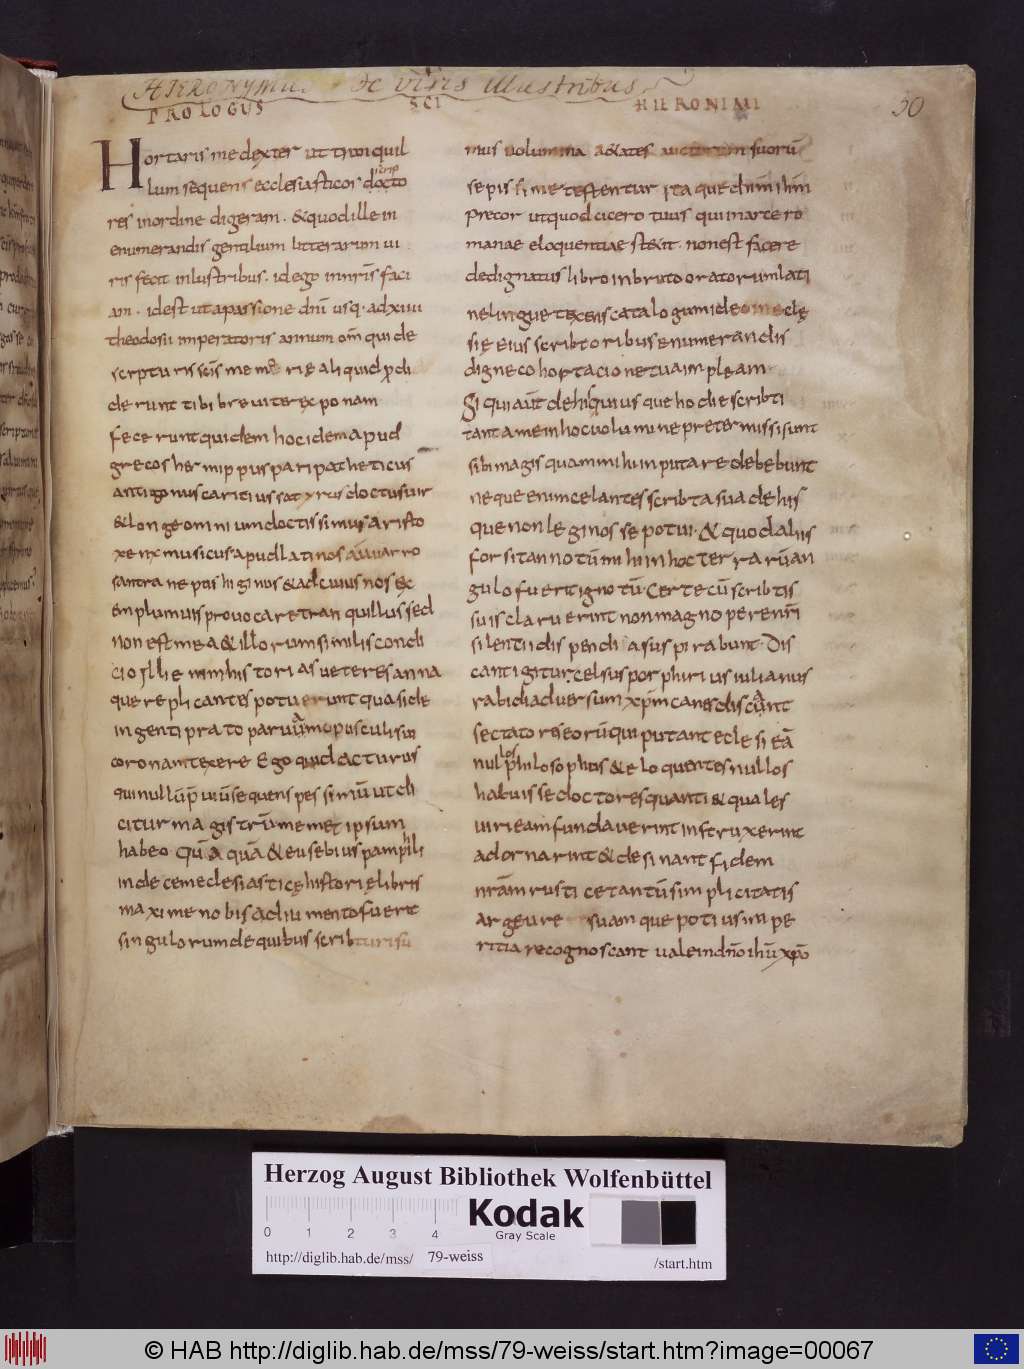 HIERONYMUS de viris illustribus
PROLOGUS SCI HIERONIMI
50
Hortaris me dexter ut tranquil
lum sequens ecclesiasticos docto
res in ordine digeram . & quod ille in
enumerandis gentilium litterarum ui
ris fecit inlustribus . id ego in nr̄is faci
am . id est ut a passione dn̄i usq . ad xiiii
theodosii imperatoris annum om̄ qui de
scrpturis scīs memorię aliquid prodi
derunt tibi breviter exponam .
fecerunt quidem hoc idem apud
grecos hermippus paripatheticus
antigonus caritius satyrus doctus uir
& longe omnium doctissimus aristo
xenx musicus apud latinos aū uarro
santra nepus higinus & ad cuius nos ex
emplum uis provocare tranquillus sed
non est mea & illorum similis condi
cio Illi enim historias veteres anna
que replicantes potuerunt quasi de
ingenti prato parvāmopusculi sui
coronam texere Ego quid acturus
qui nullūp̄uiū sequens pessimū ut di
citur magistrūmemet ipsum
habeo . Quāquā & eusebius pamphili
in decem eclesiasticę historię libris
maxime nobis adiumento fuerit
singulorum de quibus scribturi su
mus volumina aetates auctorum suorū
sepissime testentur ita que dn̄m ihm̄
precor ut quod cicero tuus qui in arce ro
manae eloquentiae stetit . non est facere
dedignatus libro in bruto oratorum lati
ne lingue texens catalogum id eo in eclę
się eius scribtoribus enumerandis
digne cohortacione tua impleam .
Si qui aūt de his qui usque hodie scribti
tant a me in hoc volumine pretermissi sunt
sibi magis quam mihi inputare debebunt
neque enim celantes scribta sua de his
que non legi nosse potui . & quod aliis
forsitan notū mihi in hoc terrarū an
gulo fuerit ignotū . Certe cū scribtis
suis claruerint non magnopere nr̄i
silentii dispendia suspirabunt . Dis
cant igitur celsus porphirius iulianus
rabidi adversum xp̄m canes discant
sectatores eorū qui putant eclesiā
nullos philosophus & eloquentes nullos
habuisse doctores quanti & quales
uiri eam fundaverint instruxerint
adornarint & desinant fidem
nrām rusticę tantū simplicitatis
argeure suam que potius impe
ritia recognoscant uale in dn̄o ihū xp̄o
Herzog August Bibliothek Wolfenbüttel
0 1 2 3 4
Kodak
Gray Scale
http://diglib.hab.de/mss/ 79-weiss /start.htm
© HAB http://diglib.hab.de/mss/79-weiss/start.htm?image=00067